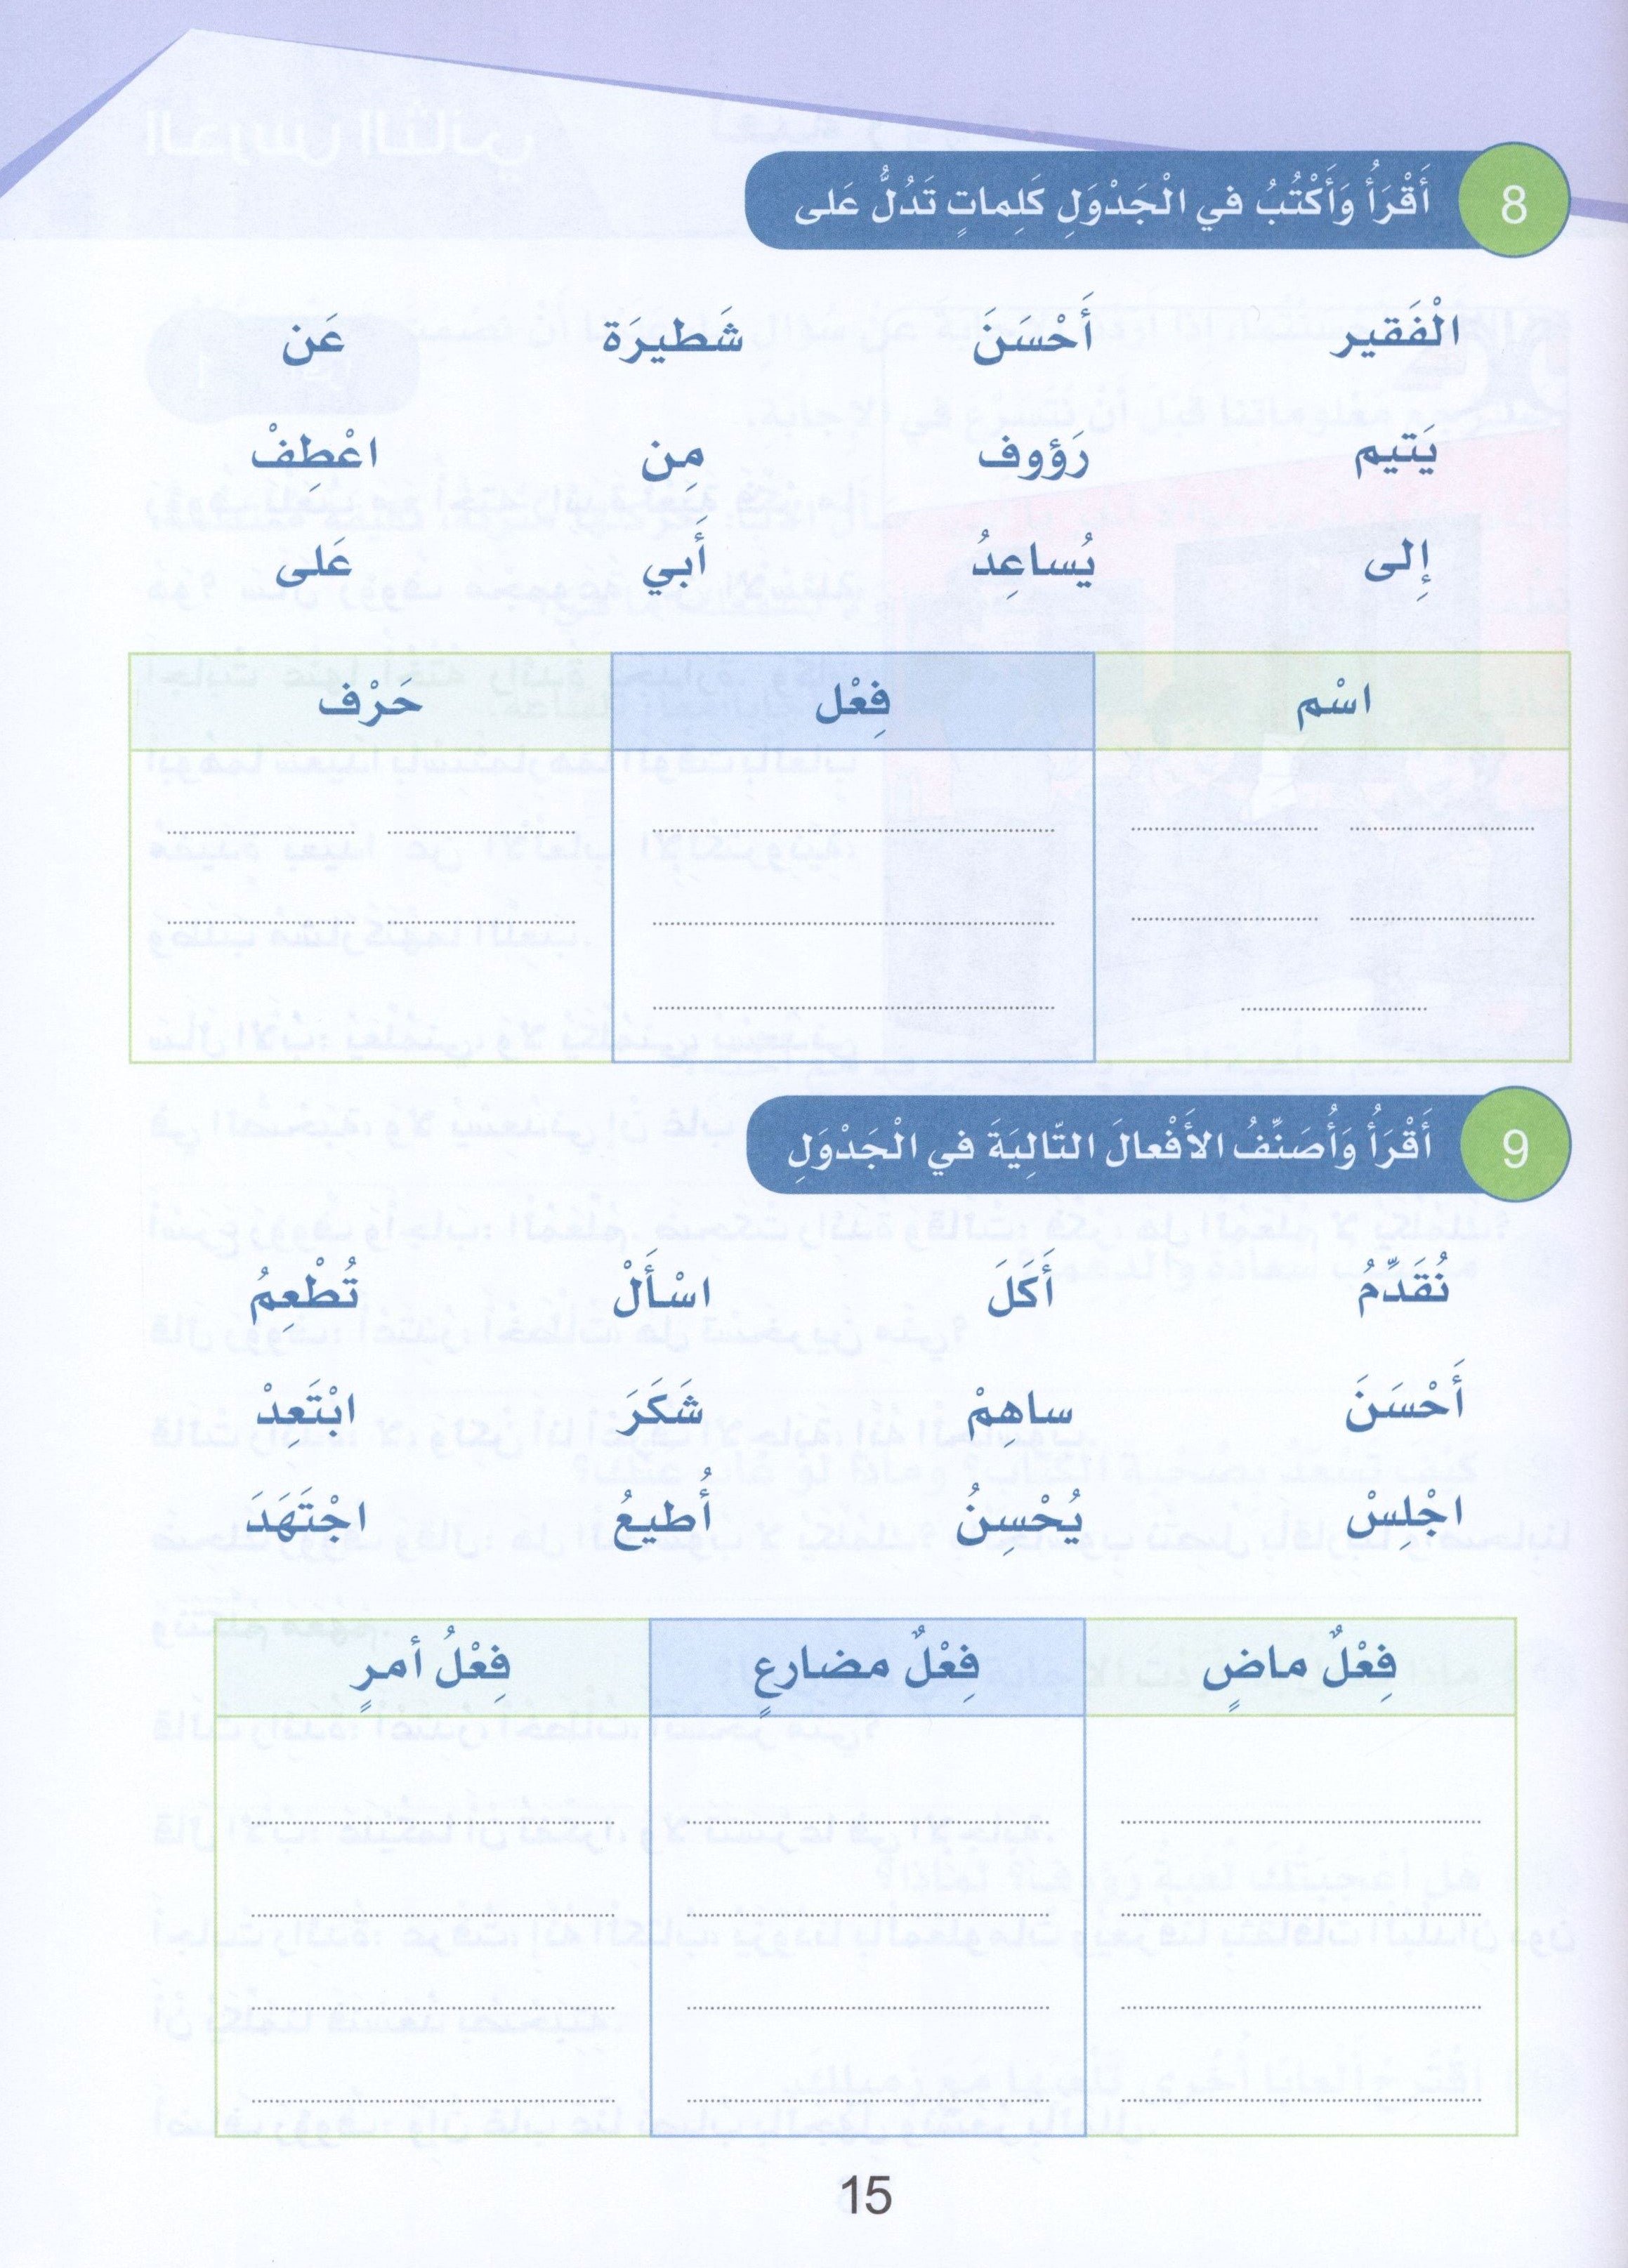 8 أَقْرَأُ وَأَكْتُبُ في الْجَدْوَلِ كَلِماتٍ تَدُلُّ عَلى
الْفَقير أَحْسَنَ شَطيرَة عَن
يَتيم رَؤوف مِن اعْطِفْ
إِلى يُساعِدُ أَبي عَلى
اسْم فِعْل حَرْف
9 أَقْرَأُ وَأُصَنِّفُ الأَفْعالَ التّالِيَةَ في الْجَدْوَلِ
نُقَدِّمُ أَكَلَ اسْأَلْ تُطْعِمُ
أَحْسَنَ ساهِمْ شَكَرَ ابْتَعِدْ
اجْلِسْ يُحْسِنُ أُطيعُ اجْتَهَدَ
فِعْلٌ ماضٍ فِعْلٌ مضارعٍ فِعْلُ أمرٍ
15